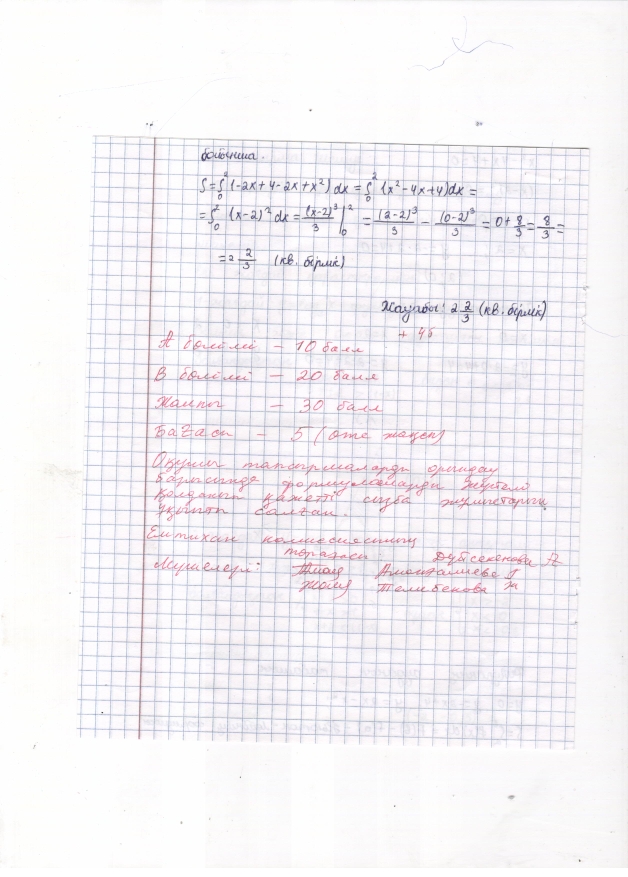 бойынша.
S=∫₀²(-2x+4-2x+x²)dx=∫₀²(x²-4x+4)dx=
=∫₀²(x-2)²dx=(x-2)³/3|₀²=(2-2)³/3-(0-2)³/3=0+8/3=8/3=
=2 2/3 (кв. бірлік)
Жауабы: 2 2/3 (кв. бірлік)
+ 4б
А бөлімі - 10 балл
В бөлімі - 20 балл
Жалпы - 30 балл
Бағасы - 5 (өте жақсы)
Оқушы тапсырмаларды орындау
барысында формулаларды
қолданып қажетті сызба жұмыстарын
салған.
Емтихан комиссиясының
төрағасы: Дүйсекенова
Мүшелері:
Телибекова